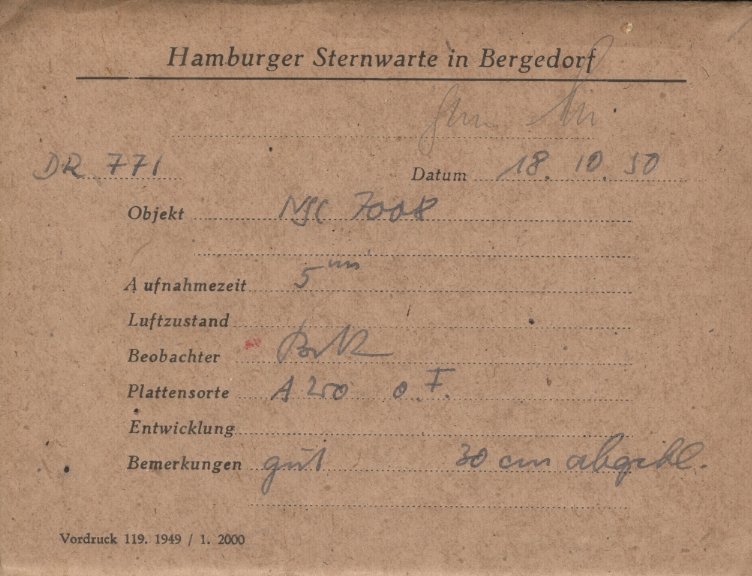 Hamburger Sternwarte in Bergedorf
DR 771 Datum 18. 10. 50
Objekt NGC 7008
Aufnahmezeit 5 m
Luftzustand
Beobachter
Plattensorte A 250 o. F.
Entwicklung
Bemerkungen gut 30 cm abgebl.
Vordruck 119. 1949 / 1. 2000